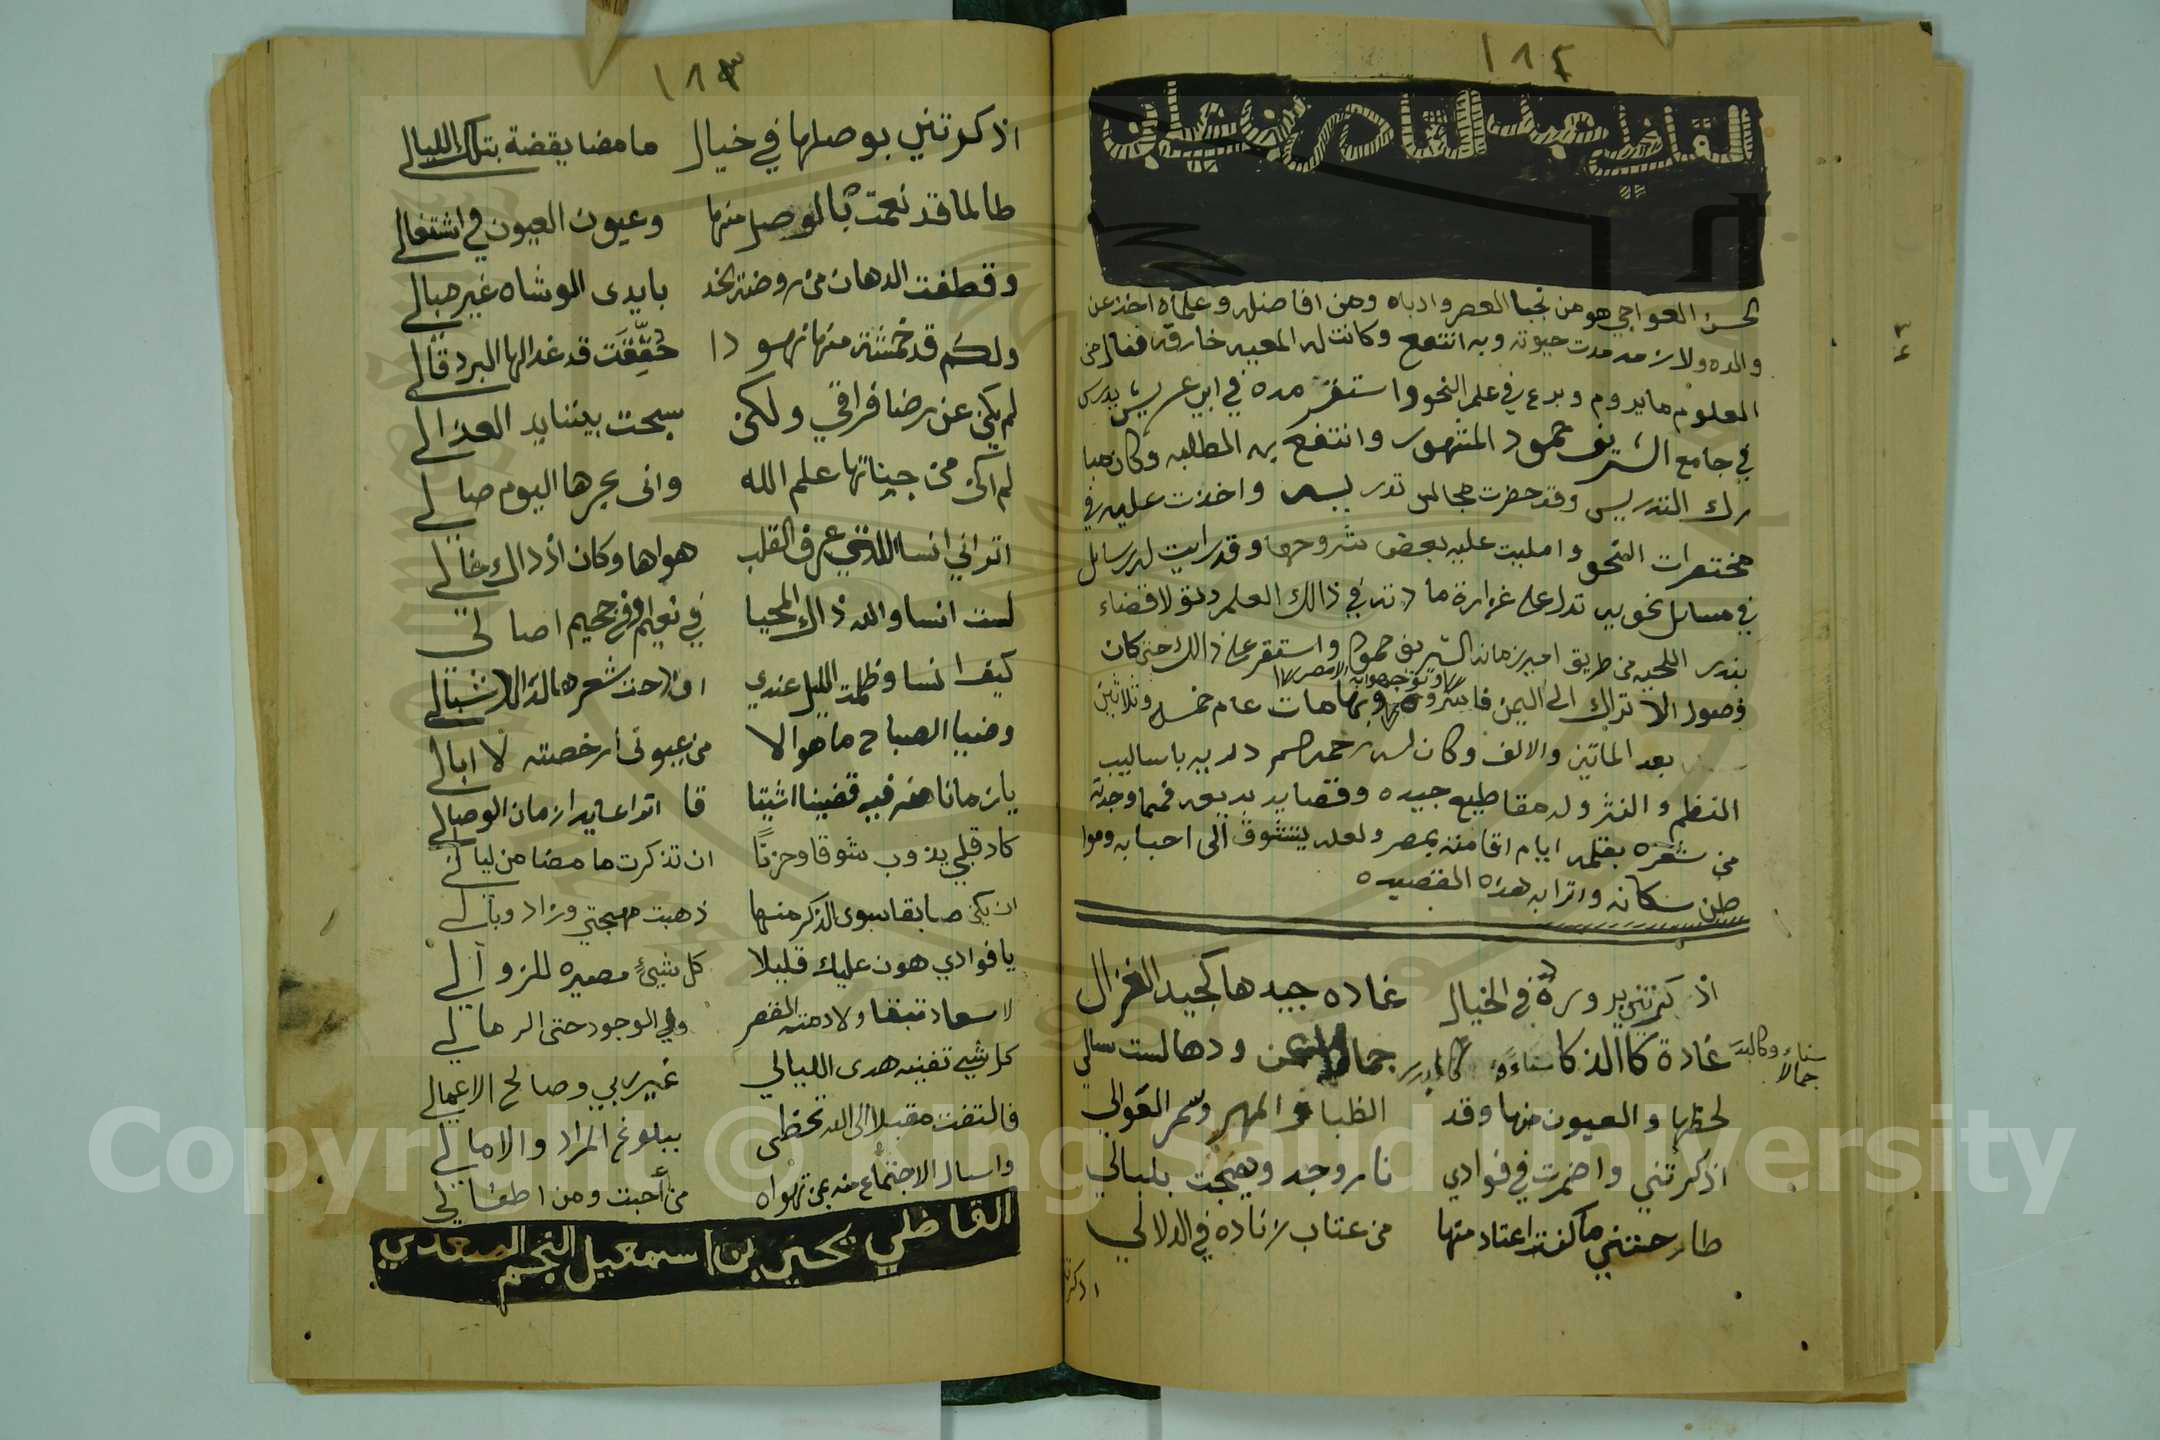 ١٨٢
القاضي عبد القادر بن علي
الحسن العواجي هو من نجبا العصر وادباه ومن افاضله وعلماه اخذ عن
والده ولازمه مدت حيوته وبه انتفع وكانت له المعيه خارقه فنال من
العلوم ما يروم وبرع في علم النحو واستقر مده في ابي عريش يدرس
في جامع الشريف حمود المشهور وانتفع به الطلبه وكان مبا
رك التدريس وقد حضرت مجالس تدريسه واخذت عليه في
مختصرات النحو وامليت عليه بعض شروحها وقد رايت له رسايل
في مسايل نحويه تدل على غزارة مادته في ذالك العلم وتولا قضاء
بندر اللحيه من طريق امير زمانه الشريف حمود واستقر على ذالك حتى كان
وصول الاتراك الى اليمن فاسروه وتوجهوا به الى مصر وبها مات عام خمس وثلاثين
بعد الماتين والالف وكان له رحمه الله دربه باساليب
النظم و النثر وله مقاطيع جيده وقصايد بديعه فمما وجدته
من شعره بقلمه ايام اقامته بمصر ولعله يتشوق الى احبابه وموا
طن سكانه واترابه هذه القصيده
اذكرتني بدورة في الخيال غاده جيدها كجيد الغزال
غادة كالذكا سناءً جمال عن ودها لست سالي
سناء وكالبدر جمالا
لحظها والعيون منها وقد الظبا والمهر وسمر العوالي
اذكرتني واضرمت في فوادي نار وجد وهيجت بلبالي
طارحتني ما كنت اعتاد منها من عتاب زناده في الدلالي
اذكرتني
١٨٣
اذكرتني بوصلها في خيال ما مضا يقضة بتلك الليالي
طالما قد نعمت بالوصل منها وعيون العيون في اشتغالي
وقطفت الدهان من روضة الخد بايدى الوشاه غير مبالي
ولكم قد خمشته منها نهودا حُقِّقَت قد غدا لها البرد قالي
لم يكن عن رضا فراقي ولكن سبحت بيننا يد العذالي
لم اكن من جيناتها علم الله وانى بحرها اليوم صالي
اتراني انسا اللتي عرف القلب هواها وكان اذ ذاك خالي
لست انسا والله ذاك المحيا في نعيم او في جحيم اصالي
كيف انسا وظلمت الليل عندي او لاحت شعرها له الاشبالي
وضيا الصباح ما هو الا من عيوني ارخصته لا ابالي
يا زمانا منه فيه قضينا اشيتا قا اترا عايدا زمان الوصالي
كاد قلبي يذوب شوقا وحزنًا ان تذكرت ما مضا من ليالي
ان يكن صابقا سوى الذكر منها ذهبت مهجتي وزاد وبالي
يا فوادي هون عليك قليلا كل شيئٍ مصيره للزوالي
لا سعاد تبقا ولا دمته القفر ولي الوجود حتى الرمالي
كل شي تفينه هدى الليالي غير ربي وصالح الاعمالي
فالتفت مقبلا الى الله تحظى ببلوغ المراد والامالي
واسال الاجتماع منه بمن تهواه من احبت ومن اطفالي
القاظي يحيى بن اسمعيل النجم الصعدي
Copyright © King Saud University